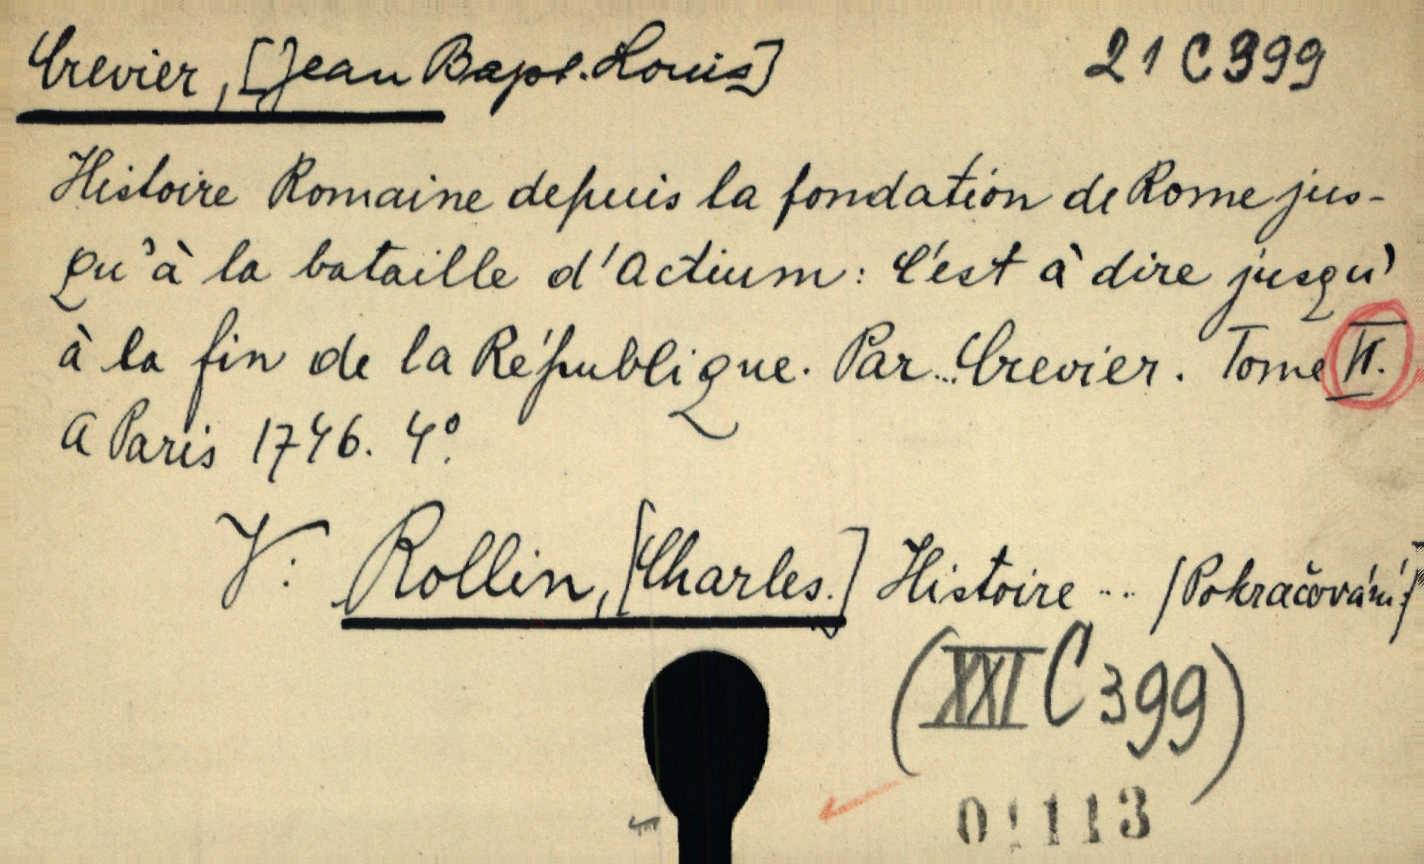 Crevier, [Jean Bapt. Louis] 21 C 399
Histoire Romaine depuis la fondation de Rome jus-
qu'à la bataille d'Actium: C'est à dire jusqu'
à la fin de la République. Par... Crevier. Tome II.
A Paris 1746. 4°.
V: Rollin, [Charles.] Histoire ... /Pokračování./
(XXI C 399)
01113